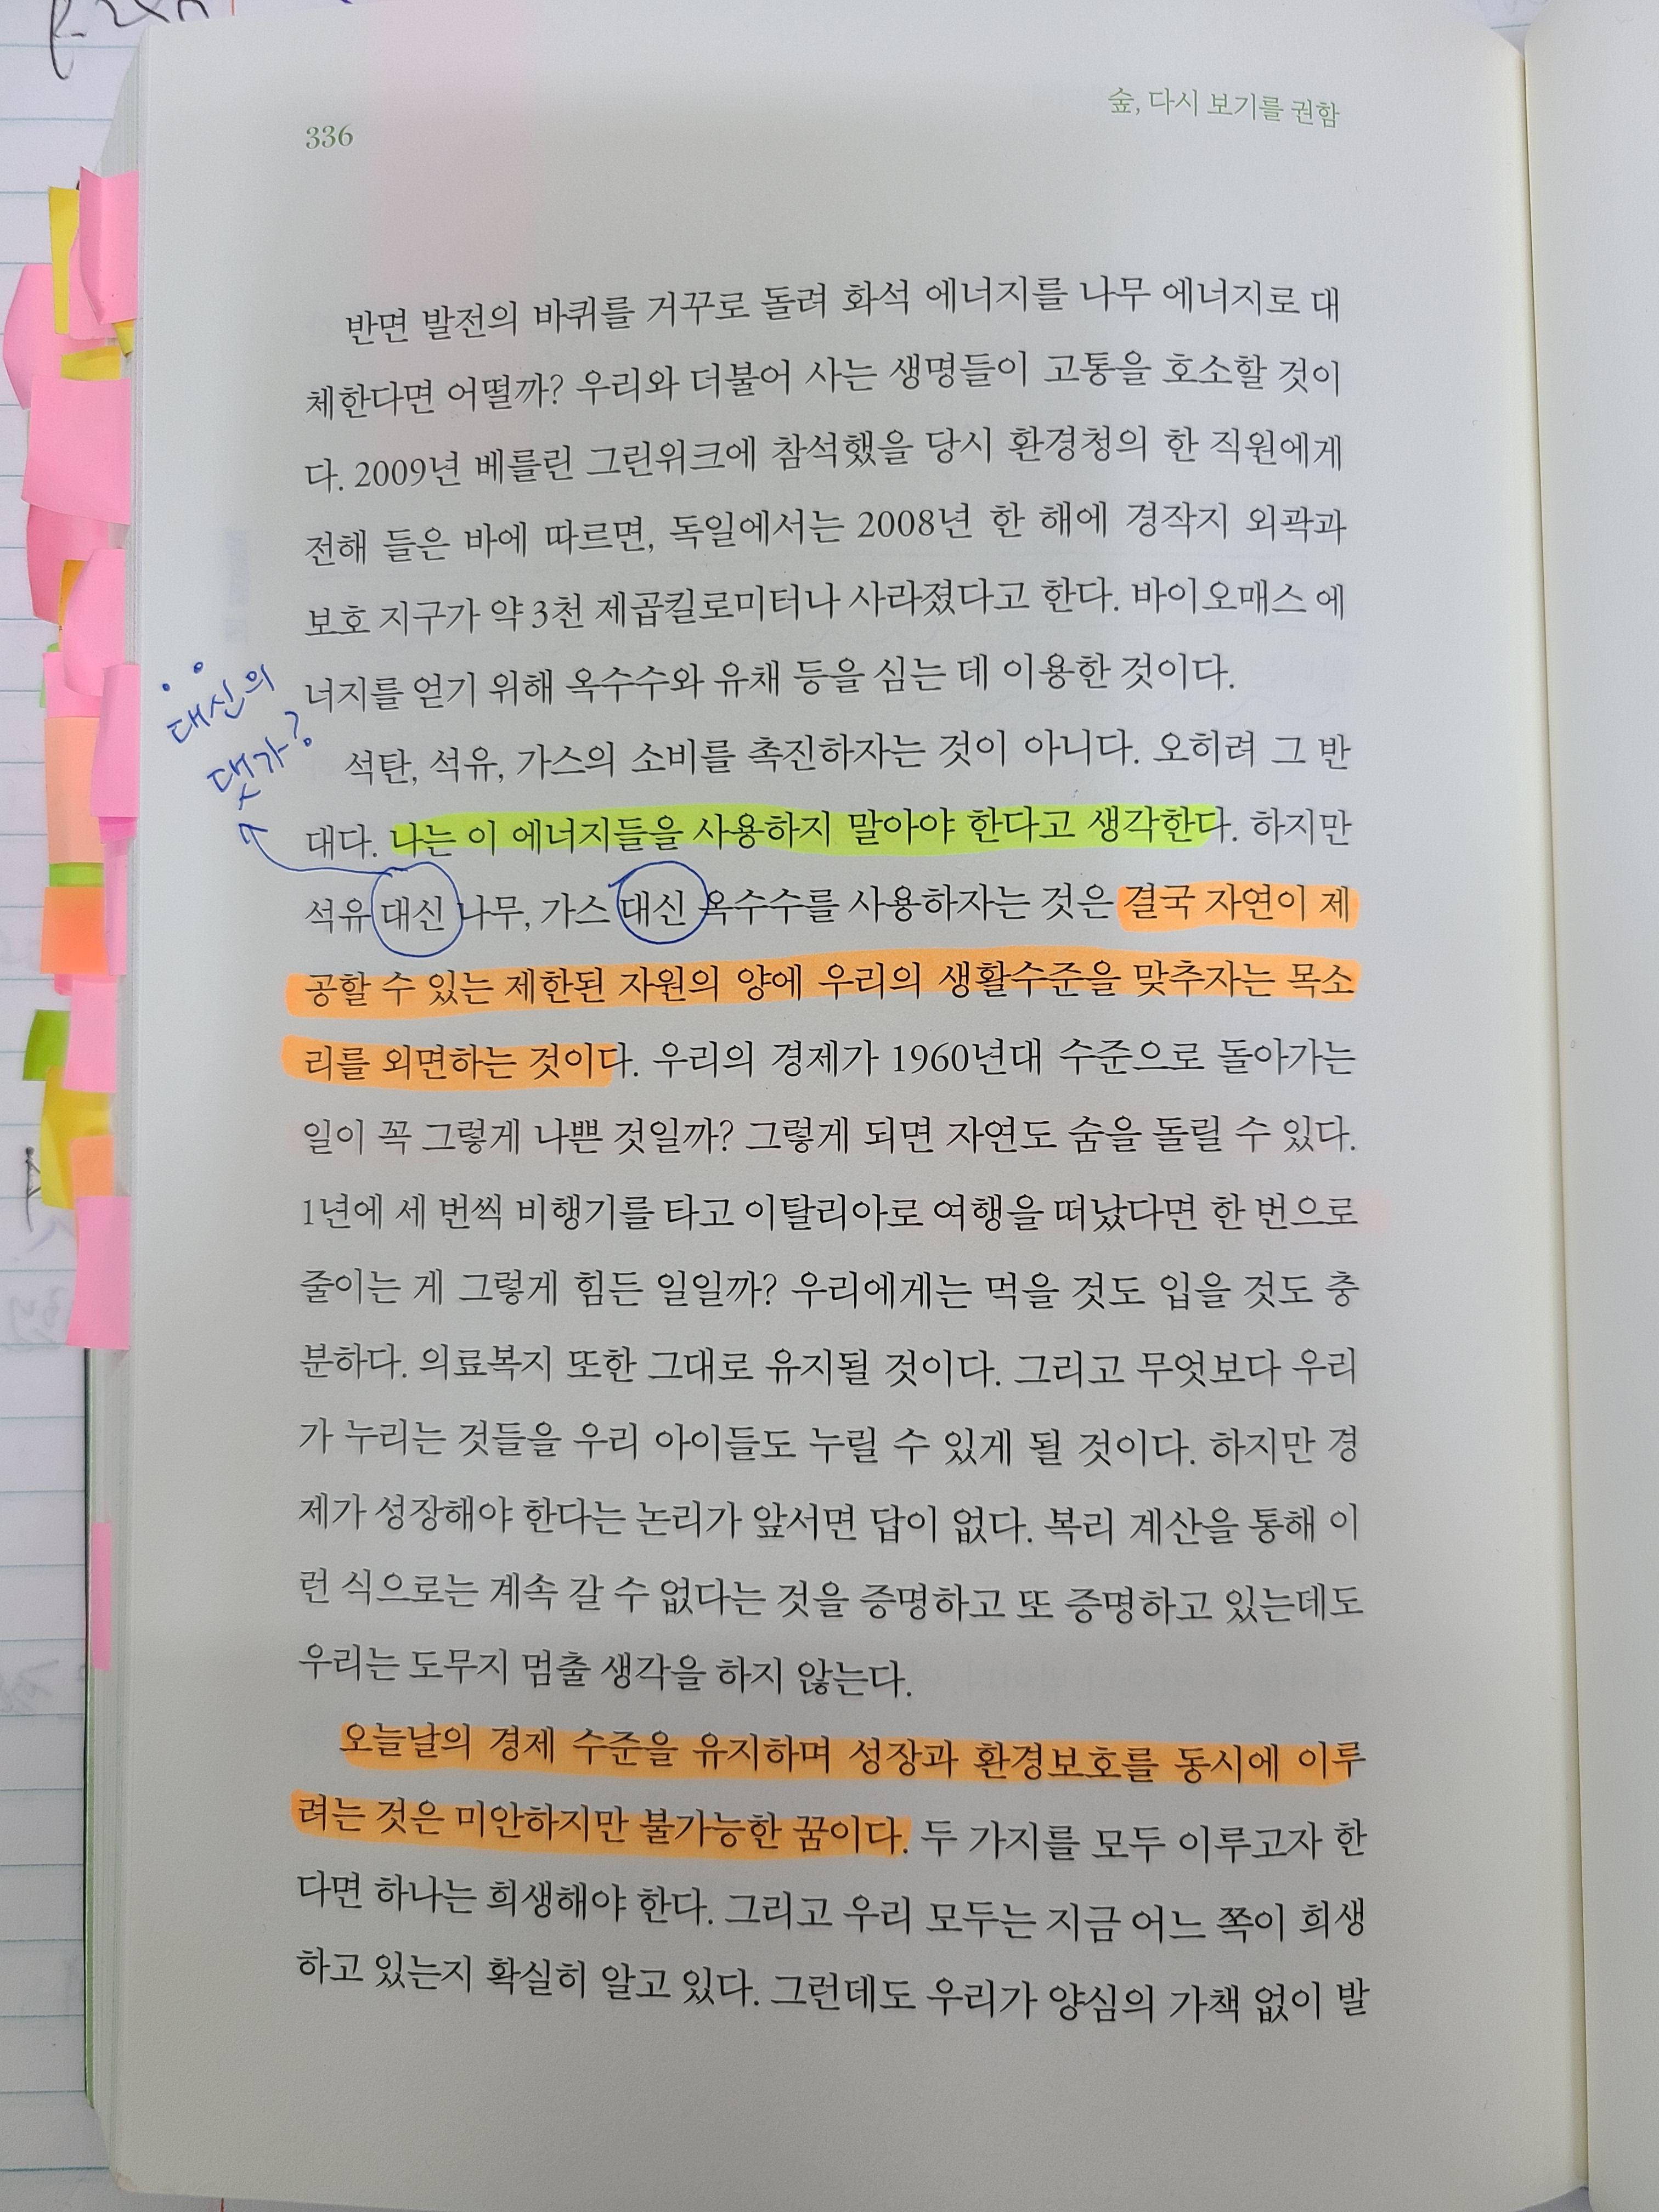 숲, 다시 보기를 권함
336
반면 발전의 바퀴를 거꾸로 돌려 화석 에너지를 나무 에너지로 대
체한다면 어떨까? 우리와 더불어 사는 생명들이 고통을 호소할 것이
다. 2009년 베를린 그린위크에 참석했을 당시 환경청의 한 직원에게
전해 들은 바에 따르면, 독일에서는 2008년 한 해에 경작지 외곽과
보호 지구가 약 3천 제곱킬로미터나 사라졌다고 한다. 바이오매스 에
너지를 얻기 위해 옥수수와 유채 등을 심는 데 이용한 것이다.
대신의
댓가?
석탄, 석유, 가스의 소비를 촉진하자는 것이 아니다. 오히려 그 반
대다. 나는 이 에너지들을 사용하지 말아야 한다고 생각한다. 하지만
석유 대신 나무, 가스 대신 옥수수를 사용하자는 것은 결국 자연이 제
공할 수 있는 제한된 자원의 양에 우리의 생활수준을 맞추자는 목소
리를 외면하는 것이다. 우리의 경제가 1960년대 수준으로 돌아가는
일이 꼭 그렇게 나쁜 것일까? 그렇게 되면 자연도 숨을 돌릴 수 있다.
1년에 세 번씩 비행기를 타고 이탈리아로 여행을 떠났다면 한 번으로
줄이는 게 그렇게 힘든 일일까? 우리에게는 먹을 것도 입을 것도 충
분하다. 의료복지 또한 그대로 유지될 것이다. 그리고 무엇보다 우리
가 누리는 것들을 우리 아이들도 누릴 수 있게 될 것이다. 하지만 경
제가 성장해야 한다는 논리가 앞서면 답이 없다. 복리 계산을 통해 이
런 식으로는 계속 갈 수 없다는 것을 증명하고 또 증명하고 있는데도
우리는 도무지 멈출 생각을 하지 않는다.
오늘날의 경제 수준을 유지하며 성장과 환경보호를 동시에 이루
려는 것은 미안하지만 불가능한 꿈이다. 두 가지를 모두 이루고자 한
다면 하나는 희생해야 한다. 그리고 우리 모두는 지금 어느 쪽이 희생
하고 있는지 확실히 알고 있다. 그런데도 우리가 양심의 가책 없이 발